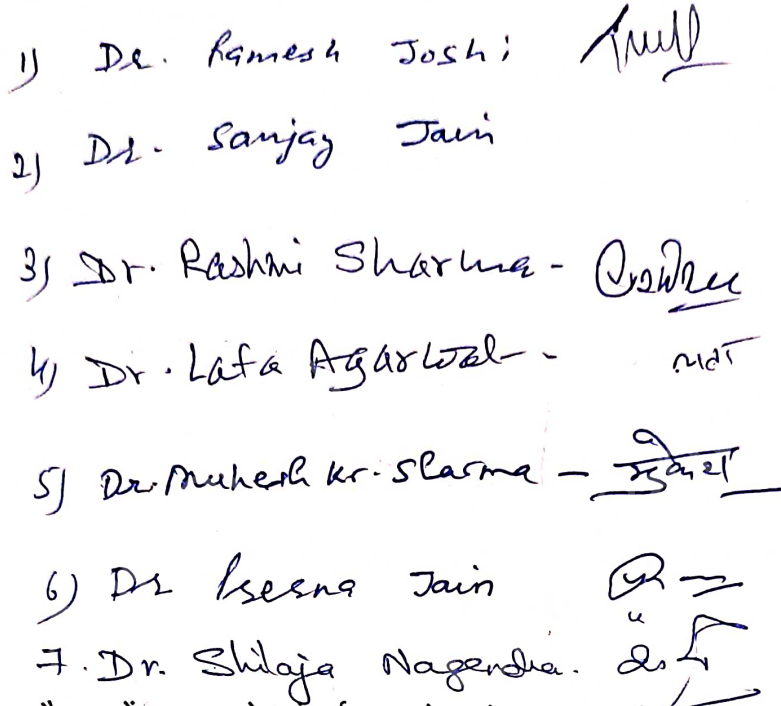 1) Dr. Ramesh Joshi
2) Dr. Sanjay Jain
3) Dr. Rashmi Sharma -
4) Dr. Lata Agarwal - लता
5) Dr. Mukesh Kr. Sharma - मुकेश
6) Dr Prerna Jain
7. Dr. Shilaja Nagendra.